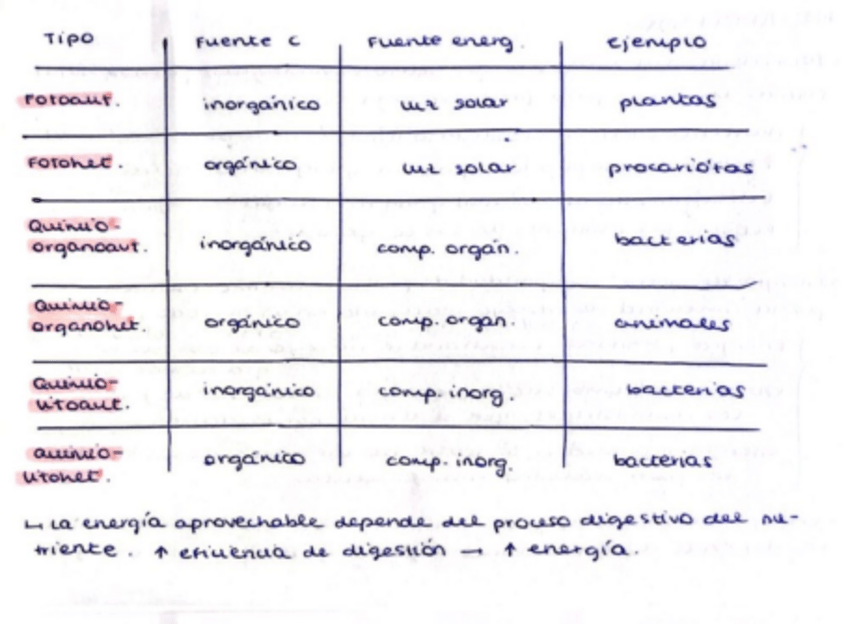 Tipo Fuente C Fuente energ. Ejemplo
Fotoaut. inorgánico luz solar plantas
Fotohet. orgánico luz solar procariótas
Quimio-
organoaut. inorgánico comp. orgán. bacterias
Quimio-
organohet. orgánico comp. organ. animales
Quimio-
litoaut. inorgánico comp. inorg. bacterias
Quimio-
litohet. orgánico comp. inorg. bacterias
↳ La energía aprovechable depende del proceso digestivo del nu-
triente. ↑ eficiencia de digestión → ↑ energía.